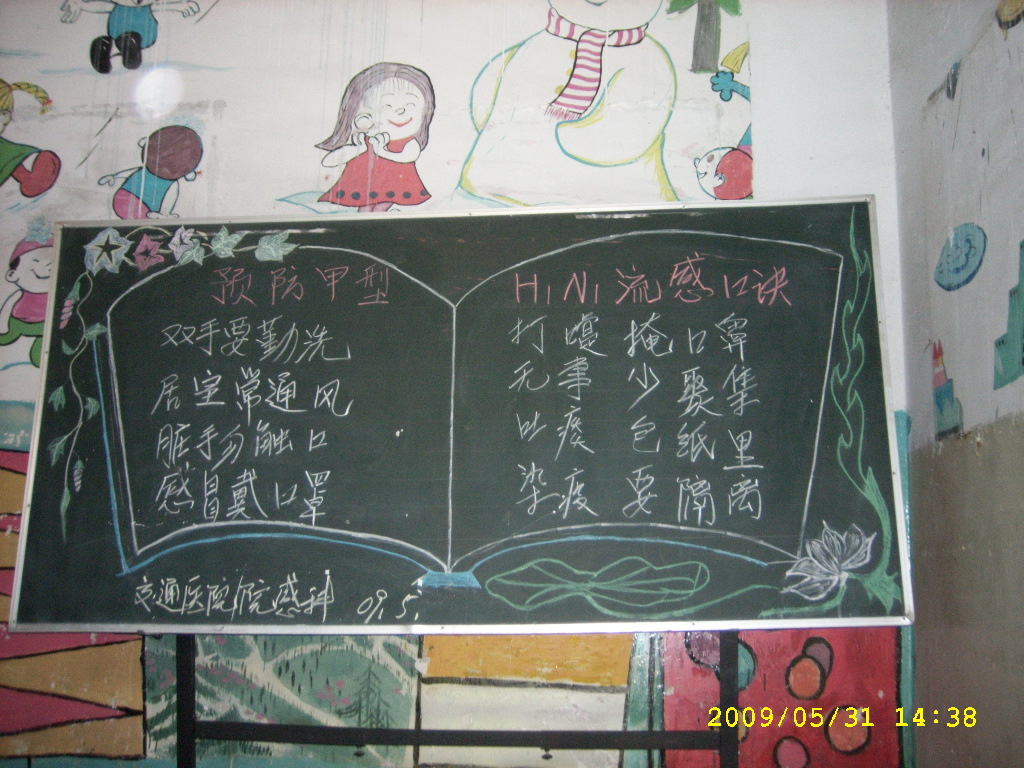 预防甲型
双手要勤洗
居室常通风
脏手勿触口
感冒戴口罩
H1N1流感口诀
打嚏掩口鼻
无事少聚集
吐痰包纸里
染疫要隔离
交通医院院感科 09.5.
2009/05/31 14:38